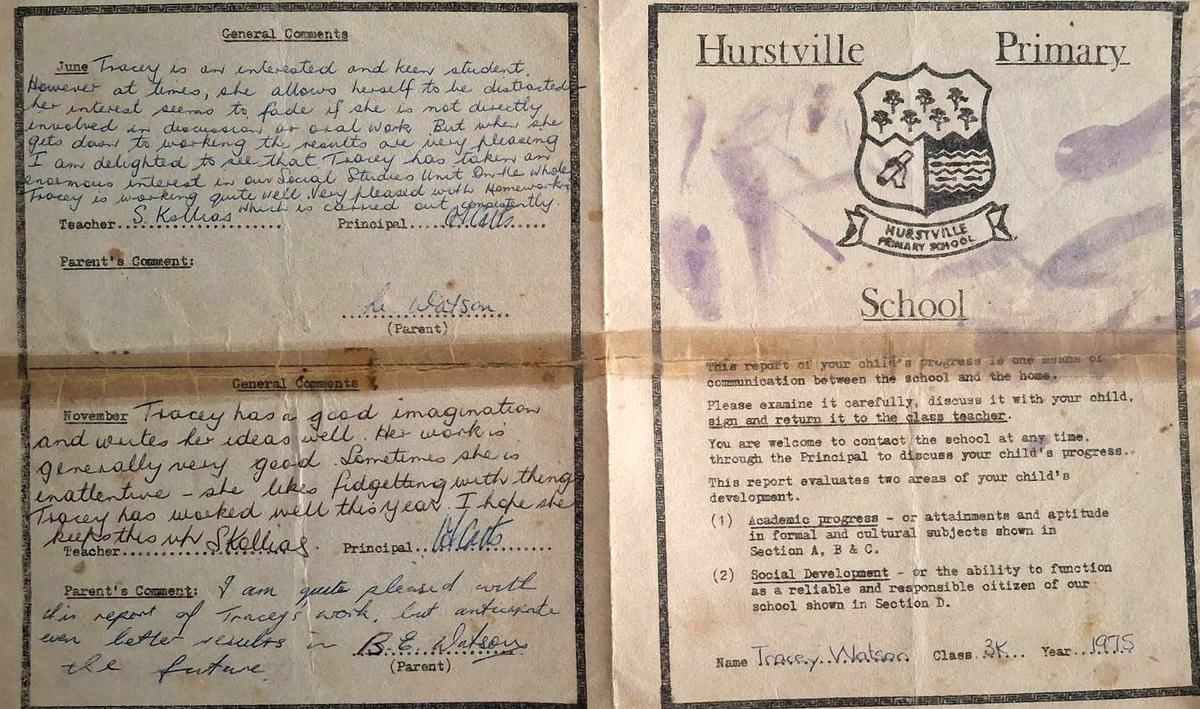 General Comments
June Tracey is an interested and keen student.
However at times, she allows herself to be distracted
her interest seems to fade if she is not directly
involved in discussion or oral work. But when she
gets down to working the results are very pleasing
I am delighted to see that Tracey has taken an
enormous interest in our Social Studies Unit On the whole
Tracey is working quite well. Very pleased with Homework
which is carried out consistently.
Teacher..S. Kollias........ Principal....
Parent's Comment:
Watson
(Parent)
General Comments
November Tracey has a good imagination
and writes her ideas well. Her work is
generally very good. Sometimes she is
inattentive - she likes fidgetting with things
Tracey has worked well this year. I hope she
keeps this up
Teacher..S Kollias. Principal....
Parent's Comment: I am quite pleased with
this report of Tracey's work, but anticipate
even better results in
the future.
B. E. Watson
(Parent)
Hurstville Primary
HURSTVILLE
PRIMARY SCHOOL
School
This report of your child's progress is one means of
communication between the school and the home.
Please examine it carefully, discuss it with your child,
sign and return it to the class teacher.
You are welcome to contact the school at any time,
through the Principal to discuss your child's progress.
This report evaluates two areas of your child's
development.
(1) Academic progress - or attainments and aptitude
in formal and cultural subjects shown in
Section A, B & C.
(2) Social Development - or the ability to function
as a reliable and responsible citizen of our
school shown in Section D.
Name Tracey Watson Class 3K... Year..1975